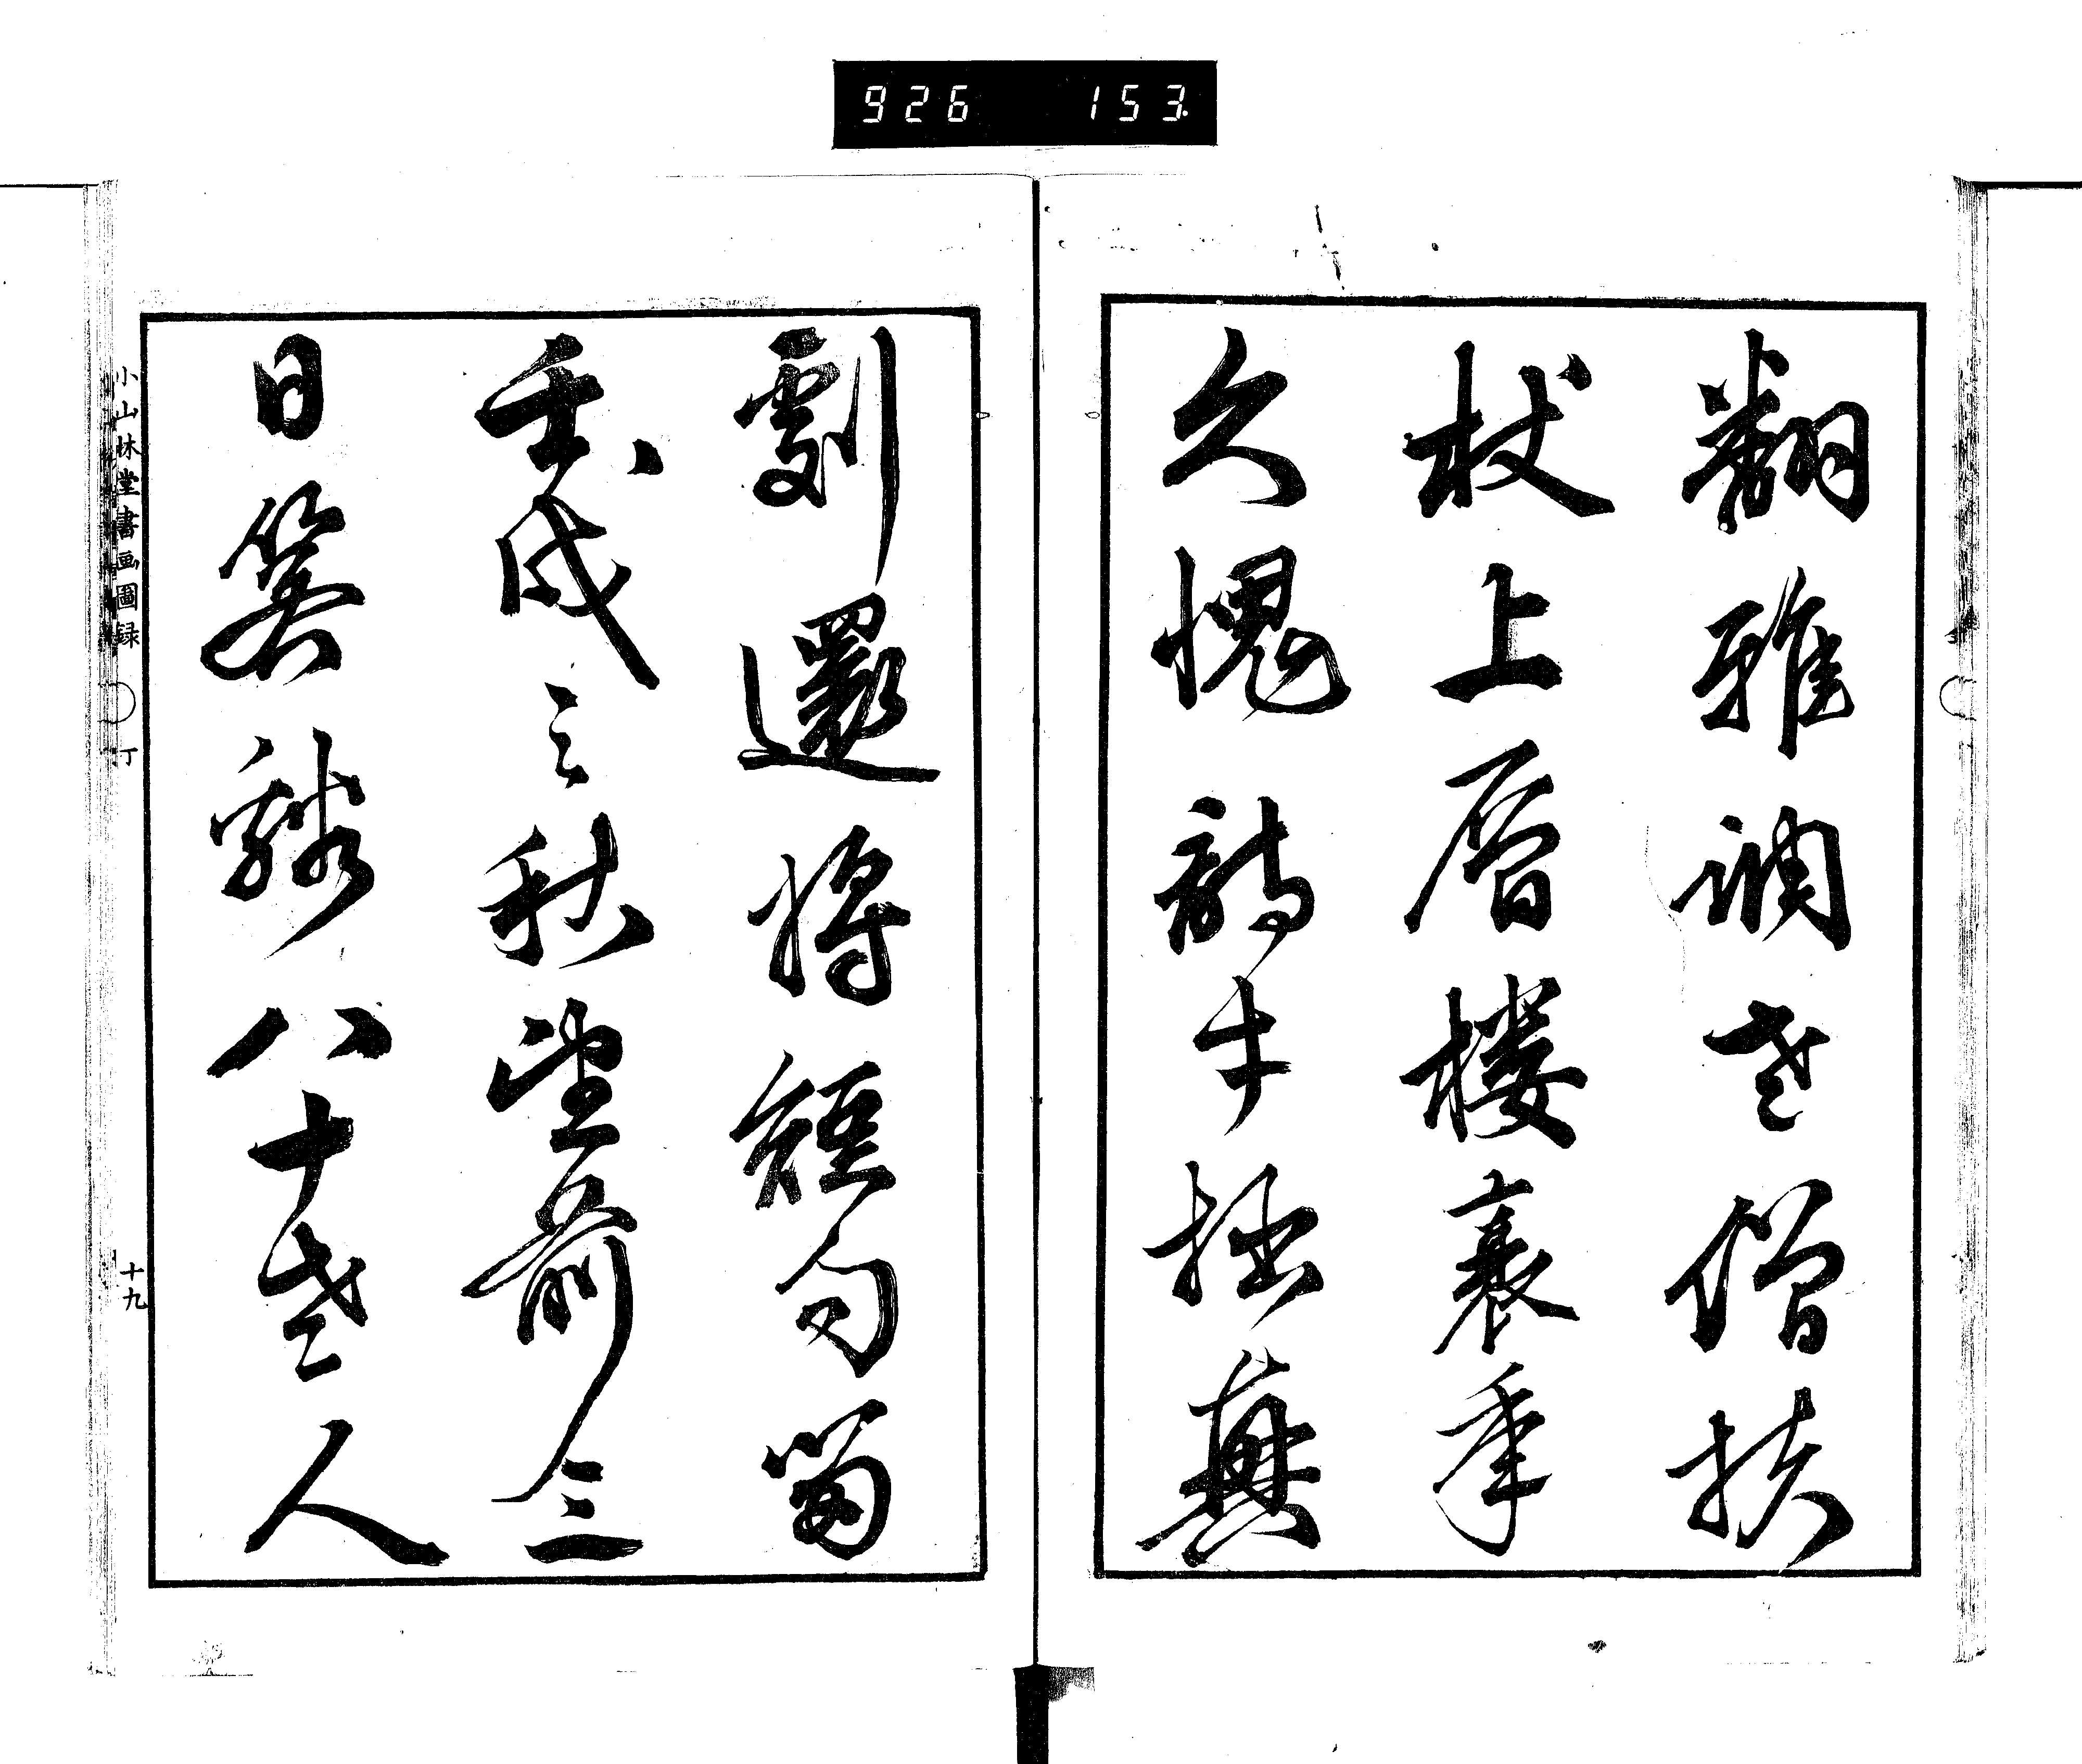 926 153.
翻雅調老僧扶
杖上層樓衰年
久愧詩才拙興
劇還將短句留
壬戌之秋望前三
日箬谿八十老人
小山林堂書画圖録 丁 十九